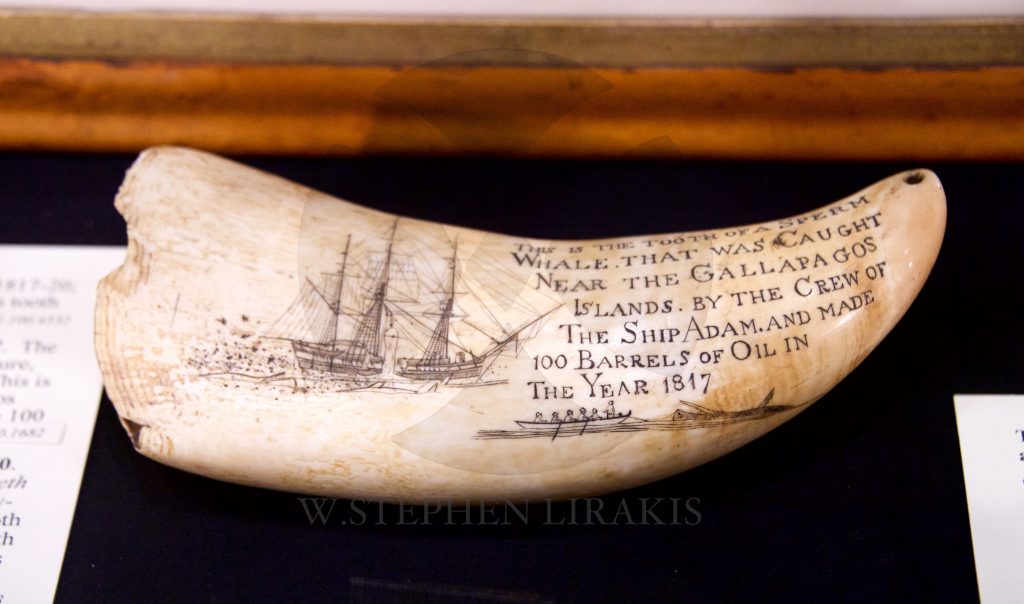 THIS IS THE TOOTH OF A SPERM
WHALE. THAT WAS CAUGHT
NEAR THE GALLAPAGOS
ISLANDS. BY THE CREW OF
THE SHIP ADAM. AND MADE
100 BARRELS OF OIL IN
THE YEAR 1817
W.STEPHEN LIRAKIS
1817-20;
tooth
The
This is
100
0.1682
0.